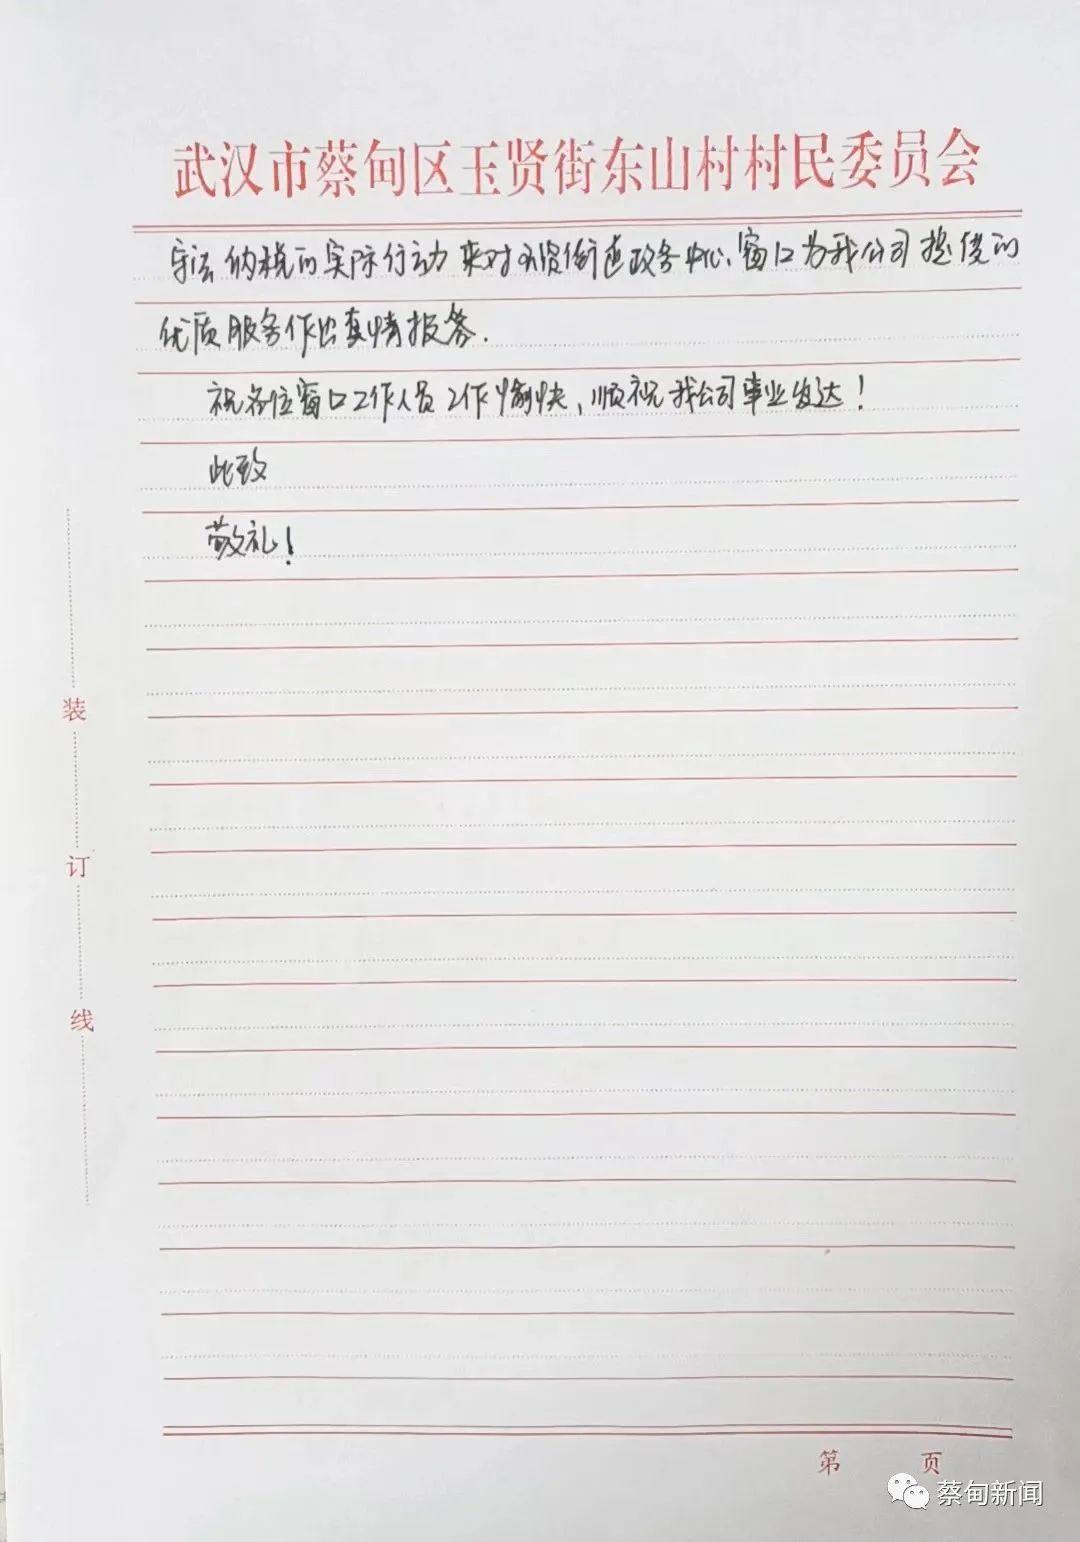 武汉市蔡甸区玉贤街东山村村民委员会
守法纳税的实际行动来对玉贤街道政务中心、窗口为我公司提供的
优质服务作出真情报答.
祝各位窗口工作人员工作愉快,顺祝我公司事业发达!
此致
敬礼!
装
订
线
第 页
蔡甸新闻